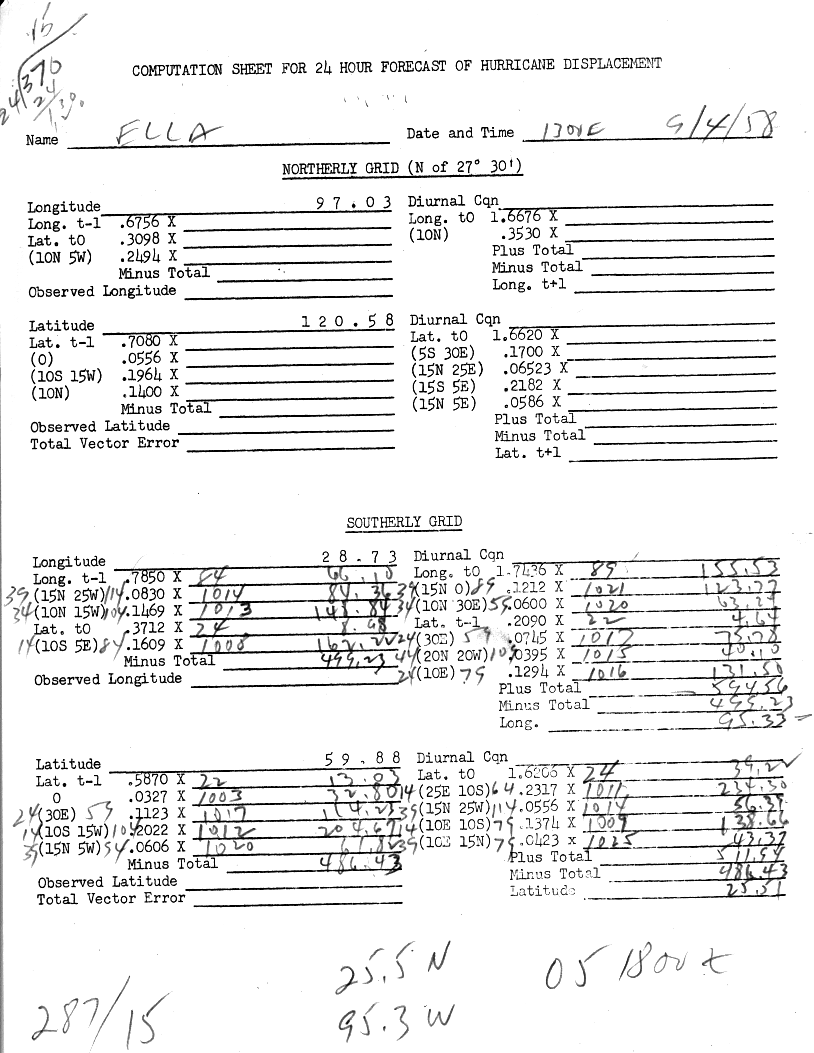 16
24 370
24
130
COMPUTATION SHEET FOR 24 HOUR FORECAST OF HURRICANE DISPLACEMENT
Name ELLA Date and Time 1300E 9/4/58
NORTHERLY GRID (N of 27° 30')
Longitude 97.03 Diurnal Cqn
Long. t-1 .6756 X Long. t0 1.6676 X
Lat. t0 .3098 X (10N) .3530 X
(10N 5W) .2494 X Plus Total
Minus Total Minus Total
Observed Longitude Long. t+1
Latitude 120.58 Diurnal Cqn
Lat. t-1 .7080 X Lat. t0 1.6620 X
(0) .0556 X (5S 30E) .1700 X
(10S 15W) .1964 X (15N 25E) .06523 X
(10N) .1400 X (15S 5E) .2182 X
Minus Total (15N 5E) .0586 X
Observed Latitude Plus Total
Total Vector Error Minus Total
Lat. t+1
SOUTHERLY GRID
Longitude 28.73 Diurnal Cqn
Long. t-1 .7850 X 84 Long. t0 1.7436 X 89 155.53
39 (15N 25W) 114 .0830 X 1014 84.36 39 (15N 0) 89 .1212 X 1021 123.77
34 (10N 15W) 104 .1469 X 1013 148.84 34 (10N 30E) 59 .0600 X 1020
Lat. t0 .3712 X 24 Lat. t-1 .2090 X 22 4.64
14 (10S 5E) 84 .1609 X 1008 162.22 24 (30E) 59 .0745 X 1017 75.78
Minus Total 499.23 44 (20N 20W) 109 .0395 X 1015 40.10
Observed Longitude 24 (10E) 79 .1294 X 1016 131.50
Plus Total 594.56
Minus Total 499.23
Long. 95.33
Latitude 59.88 Diurnal Cqn
Lat. t-1 .5870 X 22 13.03 Lat. t0 1.6206 X 24
0 .0327 X 1003 32.80 14 (25E 10S) 64 .2317 X 1011 234.30
24 (30E) 59 .1123 X 1017 114.23 39 (15N 25W) 114 .0556 X 1014 56.39
14 (10S 15W) 104 .2022 X 1012 204.67 14 (10E 10S) 79 .1374 X 1009 138.66
39 (15N 5W) 94 .0606 X 1020 39 (10E 15N) 79 .0423 x 1025 43.37
Minus Total 486.43 Plus Total 511.94
Observed Latitude Minus Total 486.43
Total Vector Error Latitude 25.51
25.5 N 05 1800 z
287/15 95.3 W